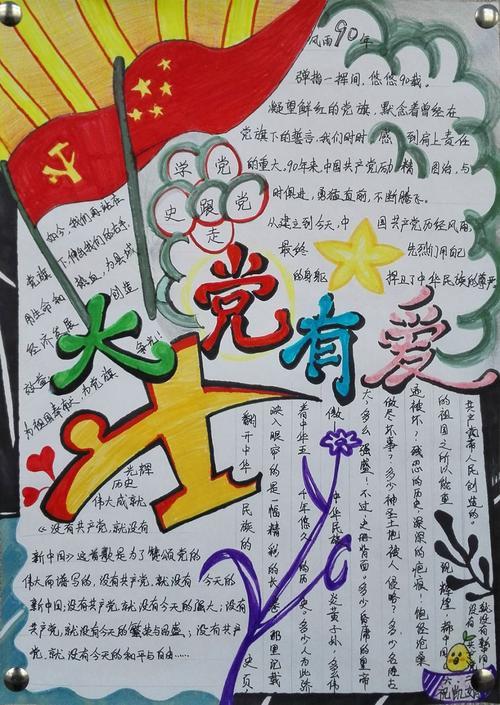 风雨90年
弹指一挥间，悠悠90载。
凝望鲜红的党旗，默念着曾经在
党旗下的誓言，我们时时感到肩上责任
的重大。90年来，中国共产党励精图治，与
时俱进，勇猛直前，不断腾飞。
从建立到今天，中国共产党历经风雨，
最终 先烈们用自己
的身躯 捍卫了中华民族的尊严
学党
史跟党
走
如今，我们再站在
党旗下，伸出我们的右手，
用生命和热血，为县城
经济发展创造
效益，为党旗争光！
为祖国奉献，
大党有爱
光辉
历史
伟大成就
《没有共产党，就没有
新中国》这首歌是为了赞颂党的
伟大而谱写的，没有共产党，就没有今天的
新中国；没有共产党，就没有今天的强大；没有
共产党，就没有今天的繁荣与昌盛；没有共产
党，就没有今天的和平与自由……
共产党带人民创造的。
的祖国之所以能重
这被坏？残忍的历史，深深的疮痍！饱经沧桑
做尽坏事？多少神圣土地被人侵吞？多少名胜古
大，多么强盛！不过，史册背面，多少昏庸的皇帝
做！中华民族，炎黄子孙，多么伟
着中华五千年悠久的历史。多少人为此骄
映入眼帘的是一幅精彩的长卷，那里记载
翻开中华民族的史页，